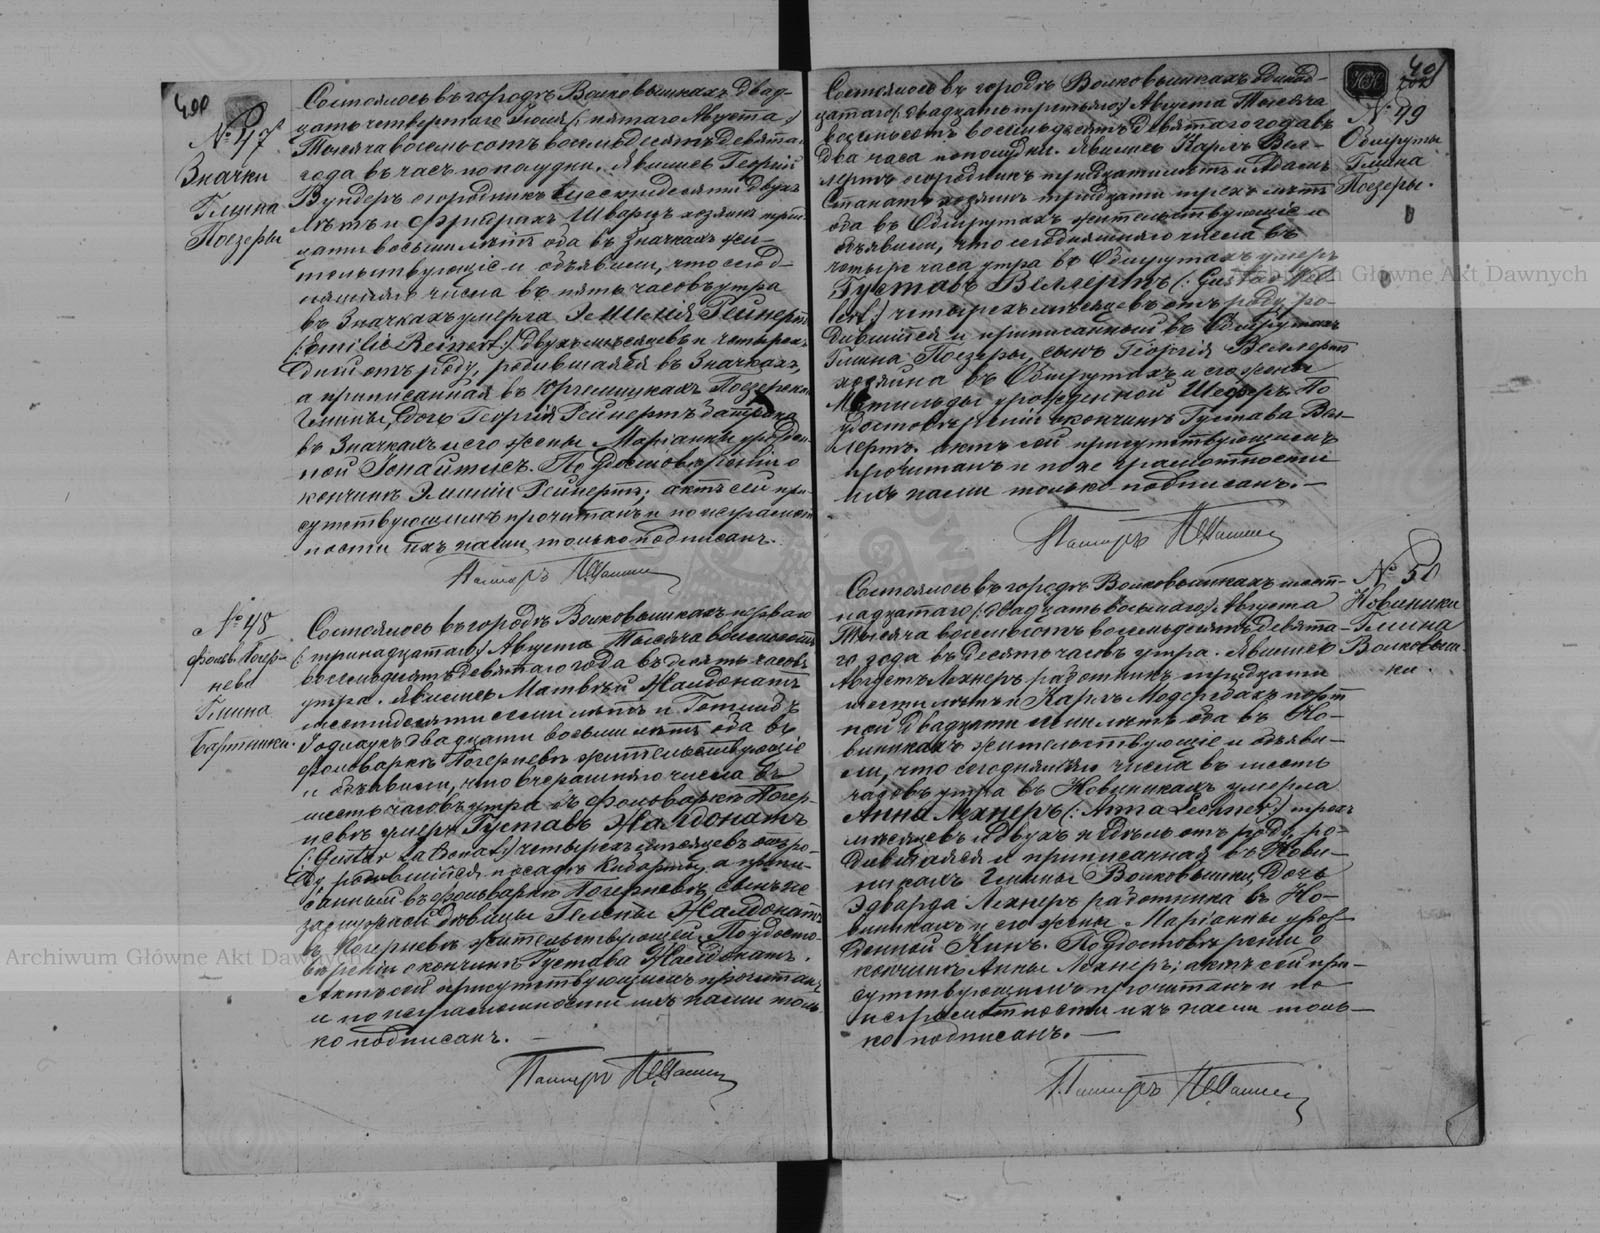 400
№ 47
Значки
Гмина
Поезеры
Состоялось въ городѣ Волковышкахъ двад-
цать четвертаго Іюля (: пятаго Августа :)
Тысяча восемьсотъ восемьдесятъ девята
года въ часъ по полудни. Явились Георгій
Вундеръ огородникъ шестидесяти двухъ
лѣтъ и Фридрихъ Шварцъ хозяинъ трид-
цати восьми лѣтъ оба въ Значкахъ жи-
тельствующіе и объявили, что сегод-
няшняго числа въ пять часовъ утра
въ Значкахъ умерла Эмилія Рейнертъ
(: Emilie Reinert :) двухъ мѣсяцевъ и четырехъ
дней отъ роду, родившаяся въ Значкахъ,
а приписанная въ Поезерской
Гмины, дочь Георгія Рейнертъ
въ Значкахъ и его жены Маріанны урожден-
ной Іонайтисъ. По удостовѣреніи о
кончинѣ Эмиліи Рейнертъ, актъ сей при-
сутствующимъ прочитанъ и по неграмот-
ности ихъ нами только подписанъ.
Пасторъ
№ 48
фольв. Погер-
нево
Гмина
Бартники.
Состоялось въ городѣ Волковышкахъ перваго
(: тринадцатаго :) Августа Тысяча восемьсотъ
восемьдесятъ девятаго года въ десять часовъ
утра. Явились Матвѣй Жалдонатъ
шестидесяти семи лѣтъ и Готлибъ
двадцати восьми лѣтъ оба въ
фольваркѣ Погерневѣ жительствующіе
и объявили, что вчерашняго числа въ
шесть часовъ утра въ фольваркѣ Погер-
невѣ умеръ Густавъ Жалдонатъ
(: Gustav :) четырехъ мѣсяцевъ отъ ро-
ду, родившійся въ посадѣ Кибарты, а припи-
санный въ фольваркѣ Погерневѣ, сынъ не
замужней дѣвицы Жалдонатъ
въ Погерневѣ жительствующей. По удосто-
вѣреніи о кончинѣ Густава Жалдонатъ.
Актъ сей присутствующимъ прочитанъ
и по неграмотности ихъ нами толь-
ко подписанъ. —
Пасторъ
401
202
№ 49
Обшруты
Гмина
Поезеры.
Состоялось въ городѣ Волковышкахъ одиннад-
цатаго (: двадцать третьяго :) Августа Тысяча
восемьсотъ восемьдесятъ девятаго года въ
два часа по полудни. Явились Карлъ Вел-
лертъ огородникъ тридцати лѣтъ и Адамъ
Станатъ хозяинъ тридцати трехъ лѣтъ
оба въ Обшрутахъ жительствующіе и
объявили, что сегодняшняго числа въ
четыре часа утра въ Обшрутахъ умеръ
Густавъ Веллертъ (: Gustav Wel-
lert :) четырехъ мѣсяцевъ отъ роду, ро-
дившійся и приписанный въ Обшрутахъ
Гмина Поезеры, сынъ Георгія Веллертъ
хозяина въ Обшрутахъ и его жены
Матильды урожденной Шеферъ. По
удостовѣреніи о кончинѣ Густава Вел-
лертъ, актъ сей присутствующимъ
прочитанъ и по не грамотности
ихъ нами только подписанъ. —
Пасторъ
№ 50
Новиники
Гмина
Волковыш-
ки.
Состоялось въ городѣ Волковышкахъ шест-
надцатаго (: двадцать восьмаго :) Августа
Тысяча восемьсотъ восемьдесятъ девята-
го года въ десять часовъ утра. Явились
Августъ Лехнеръ работникъ тридцати
шести лѣтъ и Карлъ Модергдахъ порт-
ной двадцати семи лѣтъ оба въ Но-
виникахъ жительствующіе и объяви-
ли, что сегодняшняго числа въ шесть
часовъ утра въ Новиникахъ умерла
Анна Лехнеръ (: Anna Lechner :) трехъ
мѣсяцевъ и двухъ недѣль отъ роду, ро-
дившаяся и приписанная въ Нови-
никахъ Гмины Волковышки, дочь
Эдварда Лехнеръ работника въ Но-
виникахъ и его жены Маріанны урож-
денной Кинъ. По удостовѣреніи о
кончинѣ Анны Лехнеръ, актъ сей при-
сутствующимъ прочитанъ и по
неграмотности ихъ нами толь-
ко подписанъ. —
Пасторъ
Archiwum Główne Akt Dawnych
Archiwum Główne Akt Dawnych